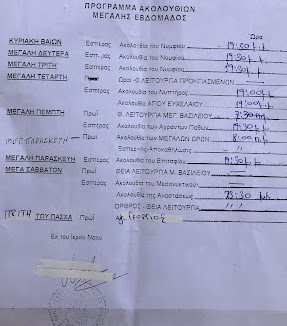 ΠΡΟΓΡΑΜΜΑ ΑΚΟΛΟΥΘΙΩΝ
ΜΕΓΑΛΗΣ ΕΒΔΟΜΑΔΟΣ
Ώρα
ΚΥΡΙΑΚΗ ΒΑΙΩΝ Εσπέρας Ακολουθία του Νυμφίου 19:30 μ.μ.
ΜΕΓΑΛΗ ΔΕΥΤΕΡΑ Εσπέρας Ακολουθία του Νυμφίου 19:30 μ.μ.
ΜΕΓΑΛΗ ΤΡΙΤΗ Εσπέρας Ακολουθία του Νυμφίου 19:30 μ.μ.
ΜΕΓΑΛΗ ΤΕΤΑΡΤΗ Πρωί Ώραι -Θ.ΛΕΙΤΟΥΡΓΙΑ ΠΡΟΗΓΙΑΣΜΕΝΩΝ
Εσπέρας Ακολουθία του Νιπτήρος 19:00 μ.
Ακολουθία ΑΓΙΟΥ ΕΥΧΕΛΑΙΟΥ 19:00 μ.μ.
ΜΕΓΑΛΗ ΠΕΜΠΤΗ Πρωί Θ. ΛΕΙΤΟΥΡΓΙΑ ΜΕΓ. ΒΑΣΙΛΕΙΟΥ 7:30 πμ
Εσπέρας Ακολουθία των Αχράντων Παθών 19:30 μ.
ΜΕΓ. ΠΑΡΑΣΚΕΥΗ Πρωί Ακολουθία των ΜΕΓΑΛΩΝ ΩΡΩΝ 8:00 πμ
Εσπερινός Αποκαθηλώσεως " "
ΜΕΓΑΛΗ ΠΑΡΑΣΚΕΥΗ Εσπέρας Ακολουθία του Επιταφίου 19:30 μ.
ΜΕΓΑ ΣΑΒΒΑΤΟΝ Πρωί ΘΕΙΑ ΛΕΙΤΟΥΡΓΙΑ Μ. ΒΑΣΙΛΕΙΟΥ
Εσπέρας Ακολουθία του Μεσονυκτικού
Ακολουθία της Αναστάσεως :30 μμ.
ΟΡΘΡΟΣ - ΘΕΙΑ ΛΕΙΤΟΥΡΓΙΑ " "
ΤΡΙΤΗ ΤΟΥ ΠΑΣΧΑ Πρωί ΓΕΩΡΓΙΟΣ
Εκ του Ιερού Ναού